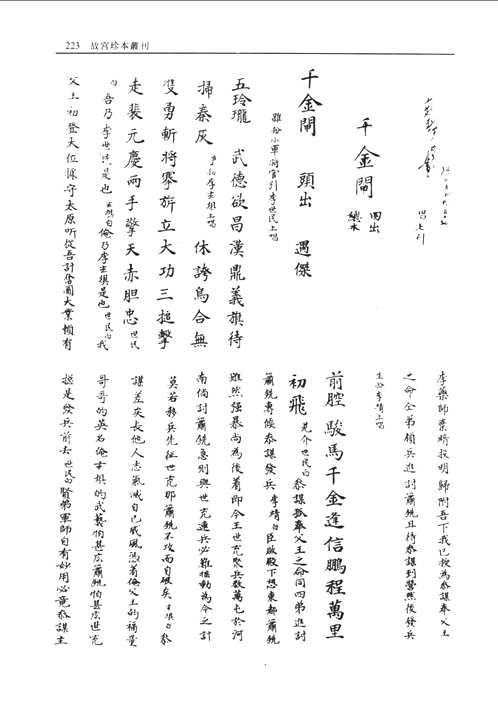 223 故宮珍本叢刊
千金閘 四出
總本
千金閘 頭出 遇傑
雜扮小軍將官引李世民上唱
五玲瓏 武德欲昌漢鼎義旗待
掃秦灰 休誇烏合無
雙勇斬將搴旂立大功三撾擊
走裴元慶兩手擎天赤胆忠 世民
白 吾乃李世民是也 俺乃李玄琪是也 世民白 我
父王初登大位據守太原听從吾計啚大業頼有
李藥師棄將投明歸附吾下我已授為叅謀奉父王
之命仝弟領兵進討蕭銑且待叅謀到營然後發兵
生扮李靖上唱
前腔 駿馬千金逢信鵬程萬里
初飛 世民白 叅謀孤奉父王之命同四弟進討
蕭銑專候叅謀發兵 李靖白 臣啟殿下想東都蕭銑
雖然强暴尚為後着即今王世充聚兵數萬屯於河
南倘討蕭銑急則與世充連兵必難摇動為今之計
莫若移兵先征世充那蕭銑不攻而自破矣 叅
謀差矣長他人志氣滅自己威風憑着俺父王的福量
哥哥的英名俺玄琪的武藝怕甚広蕭銑怕甚広世充
挺是發兵前去 世民白 賢弟軍師自有妙用必竟叅謀主